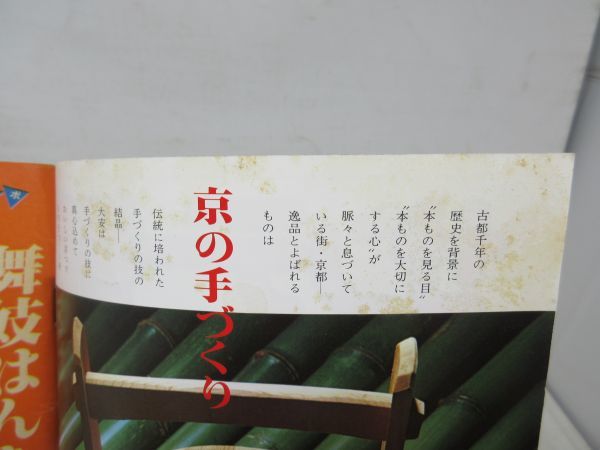 古都千年の
歴史を背景に
“本ものを見る目”
“本ものを大切に
する心”が
脈々と息づいて
いる街・京都―
逸品とよばれる
ものは
京の手づくり
伝統に培われた
手づくりの技の
結晶――
大安は
手づくりの技に
真心込めて
ポ
舞妓はん